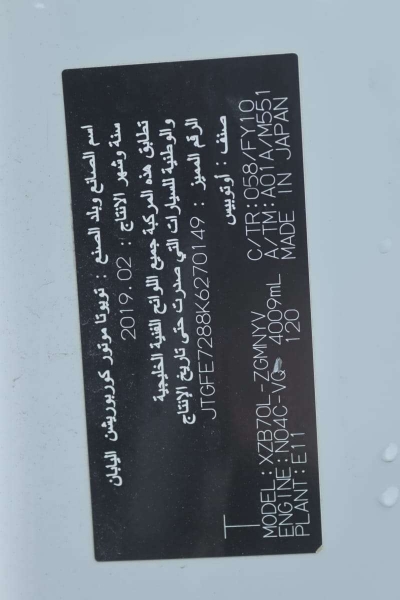 اسم الصانع وبلد الصنع : تويوتا موتور كوربوريشن اليابان
سنة وشهر الإنتاج : 2019.02
تطابق هذه المركبة جميع اللوائح الفنية الخليجية
والوطنية للسيارات التي صدرت حتى تاريخ الإنتاج
الرقم المميز : JTGFE7288K6270149
صنف : أوتوبيس
MODEL:XZB70L-ZGMNYV C/TR:058/FY10
ENGINE:N04C-VQ 4009mL A/TM:A01A/M551
PLANT:E11 120 MADE IN JAPAN